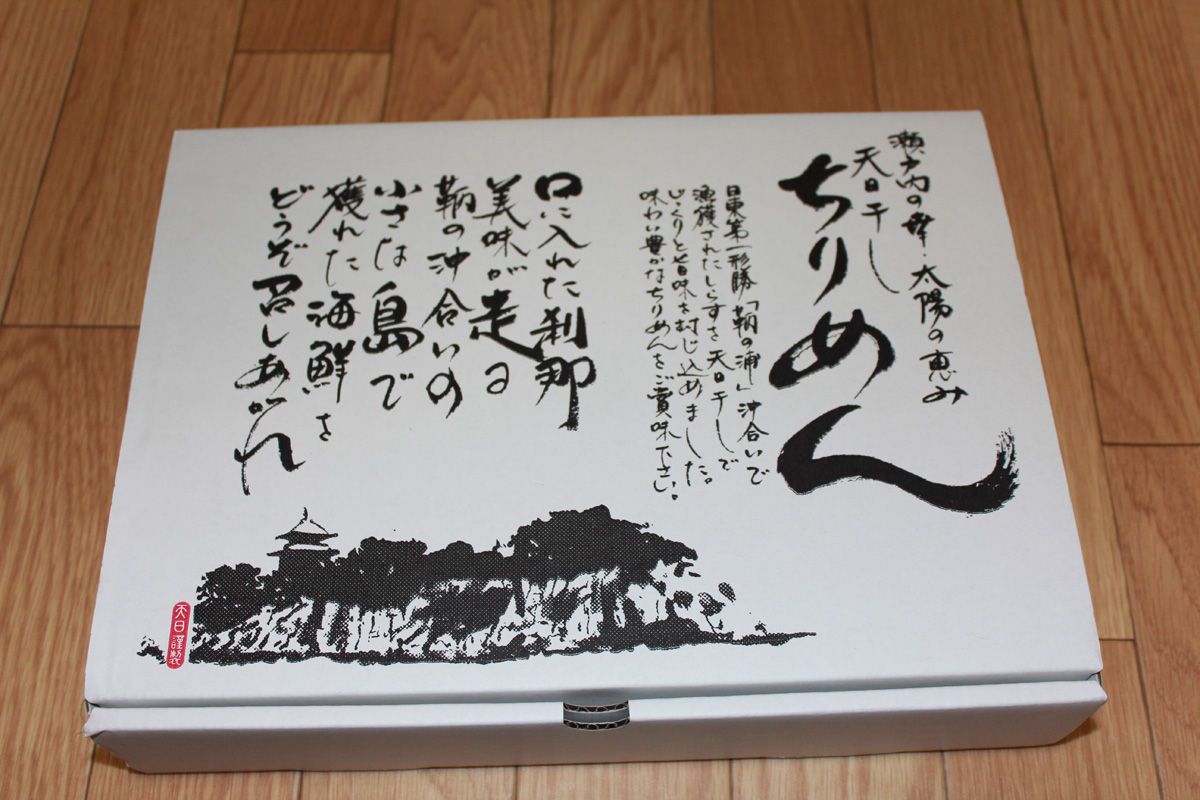 瀬戸内の幸・太陽の恵み
天日干し
ちりめん
日東第一形勝「鞆の浦」沖合いで
漁獲されたしらすを天日干しで
じっくりと旨味を封じ込めました。
味わい豊かなちりめんをご賞味下さい。
口に入れた刹那
美味が走る
鞆の沖合いの
小さな島で
獲れた海鮮を
どうぞ召しあがれ
天日謹製